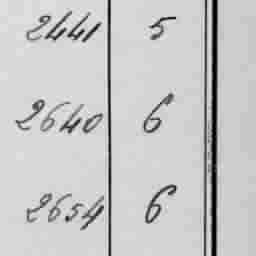 2441 5
2640 6
2654 6